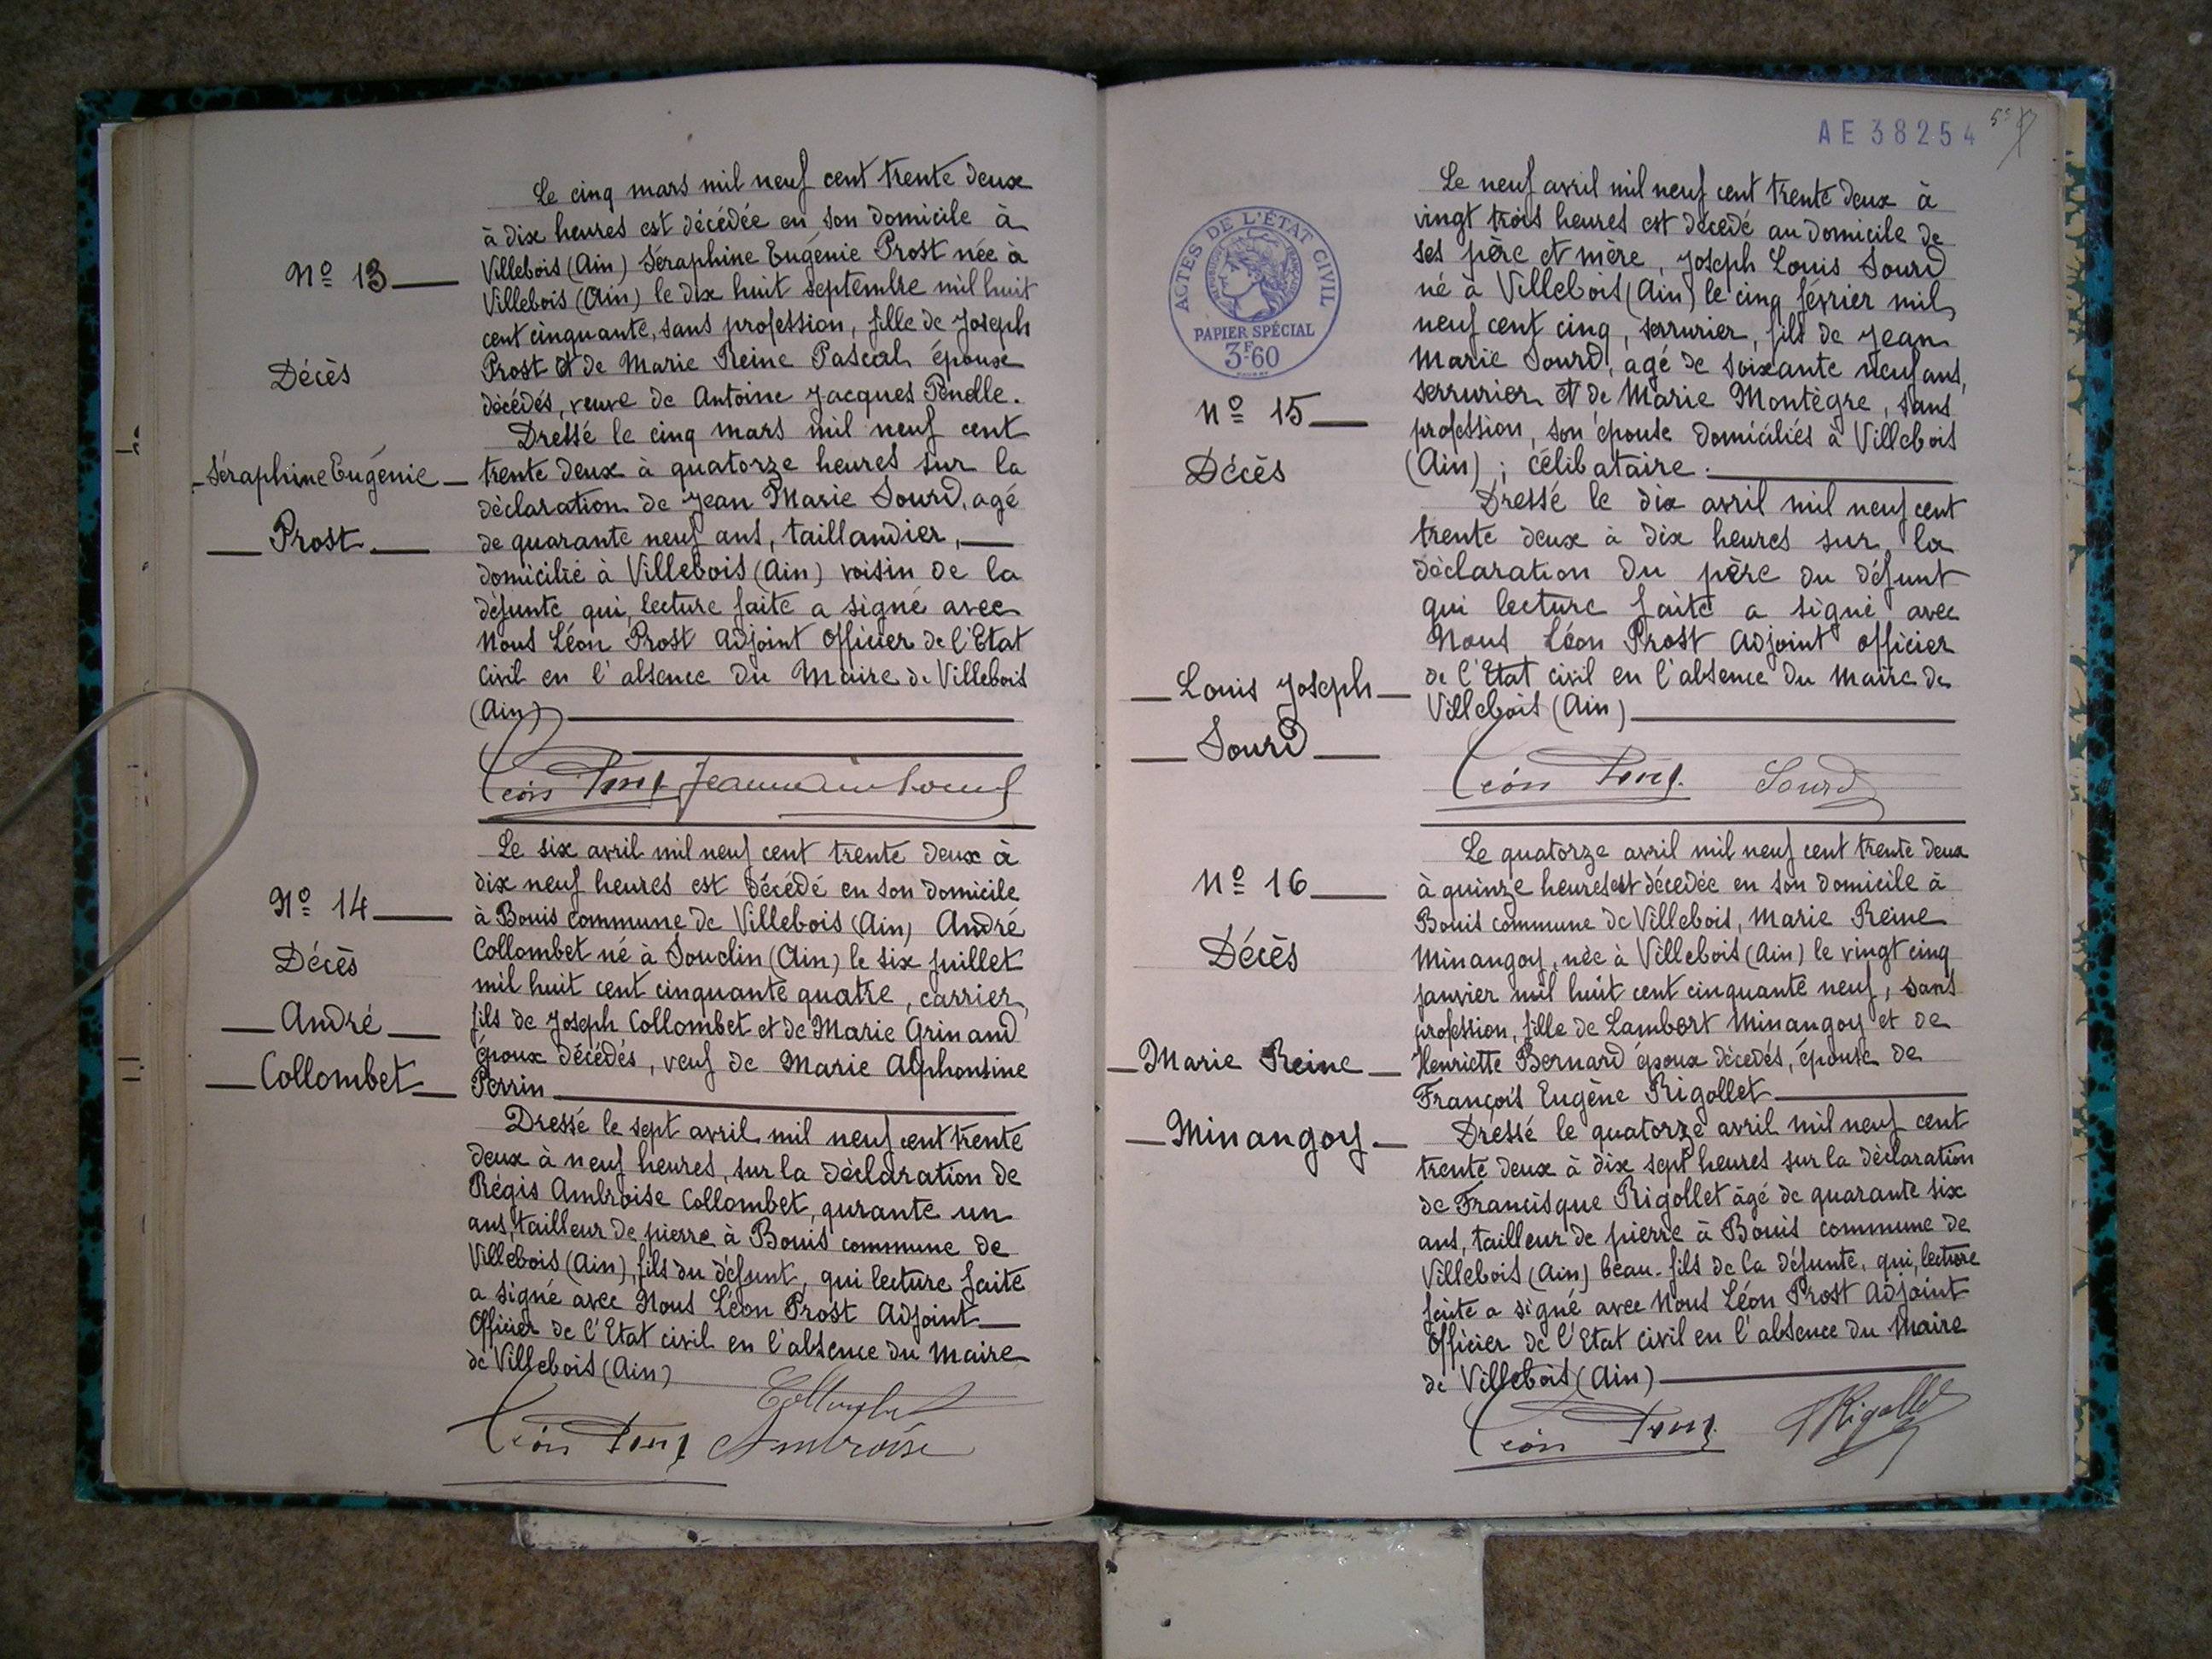 Nº 13
Décès
Séraphine Eugénie
Prost
Le cinq mars mil neuf cent trente deux
à dix heures est décédée en son domicile à
Villebois (Ain) Séraphine Eugénie Prost née à
Villebois (Ain) le dix huit septembre mil huit
cent cinquante, sans profession, fille de Joseph
Prost et de Marie Reine Pascal époux
décédés, veuve de Antoine Jacques Penelle.
Dressé le cinq mars mil neuf cent
trente deux à quatorze heures sur la
déclaration de Jean Marie Sourd, agé
de quarante neuf ans, taillandier,
domicilié à Villebois (Ain) voisin de la
défunte qui, lecture faite a signé avec
Nous Léon Prost Adjoint Officier de l'Etat
Civil en l'absence du Maire de Villebois
(Ain)
Léon Prost Jean Marie Sourd
Nº 14
Décès
André
Collombet
Le six avril mil neuf cent trente deux à
dix neuf heures est décédé en son domicile
à Bouis commune de Villebois (Ain) André
Collombet né à Souclin (Ain) le six juillet
mil huit cent cinquante quatre, carrier,
fils de Joseph Collombet et de Marie Grinand
époux décédés, veuf de Marie Alphonsine
Perrin
Dressé le sept avril mil neuf cent trente
deux à neuf heures, sur la déclaration de
Régis Ambroise Collombet, qurante un
ans, tailleur de pierre à Bouis commune de
Villebois (Ain), fils du défunt, qui lecture faite
a signé avec Nous Léon Prost Adjoint
Officier de l'Etat civil en l'absence du Maire
de Villebois (Ain)
Collombet
Léon Prost Ambroise
AE 38254
ACTES DE L'ÉTAT CIVIL
RÉPUBLIQUE FRANÇAISE
PAPIER SPÉCIAL
3F60
Nº 15
Décès
Louis Joseph
Sourd
Le neuf avril mil neuf cent trente deux à
vingt trois heures est décédé au domicile de
ses père et mère, Joseph Louis Sourd
né à Villebois (Ain) le cinq février mil
neuf cent cinq, serrurier, fils de Jean
Marie Sourd, agé de soixante neuf ans,
serrurier et de Marie Montègre, sans
profession, son épouse domiciliés à Villebois
(Ain) ; célibataire.
Dressé le dix avril mil neuf cent
trente deux à dix heures sur la
déclaration du père du défunt
qui lecture faite a signé avec
Nous Léon Prost Adjoint officier
de l'Etat civil en l'absence du Maire de
Villebois (Ain)
Léon Prost. Sourd
Nº 16
Décès
Marie Reine
Minangoy
Le quatorze avril mil neuf cent trente deux
à quinze heures est décédée en son domicile à
Bouis commune de Villebois, Marie Reine
Minangoy, née à Villebois (Ain) le vingt cinq
janvier mil huit cent cinquante neuf, sans
profession, fille de Lambert Minangoy et de
Henriette Bernard époux décédés, épouse de
François Eugène Rigollet
Dressé le quatorze avril mil neuf cent
trente deux à dix sept heures sur la déclaration
de Francisque Rigollet âgé de quarante six
ans, tailleur de pierre à Bouis commune de
Villebois (Ain) beau-fils de la défunte, qui, lecture
faite a signé avec Nous Léon Prost Adjoint
Officier de l'Etat civil en l'absence du Maire
de Villebois (Ain)
Léon Prost. FRigollet